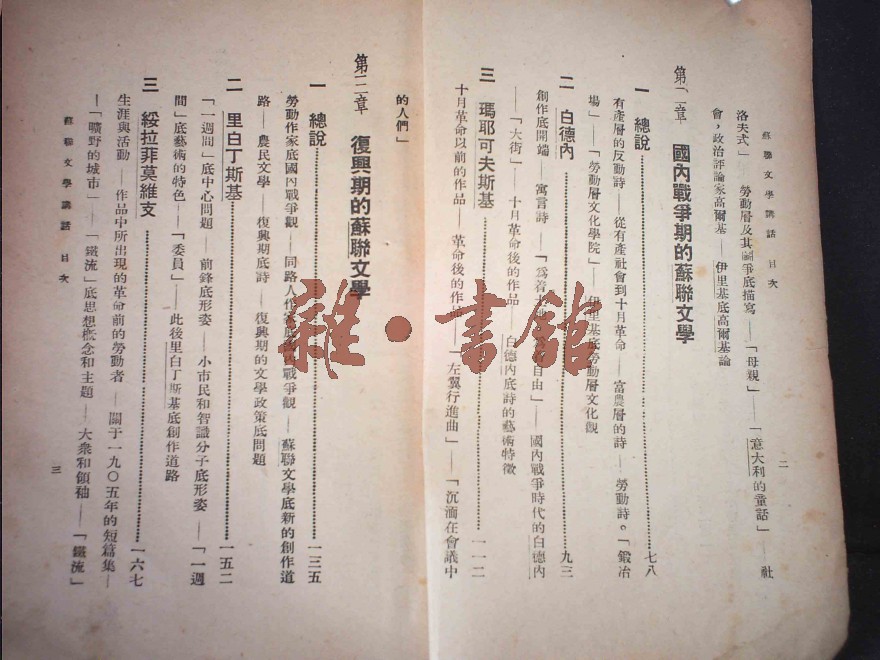 蘇聯文學講話 目次
二
洛夫式」 勞動層及其鬭爭底描寫——「母親」——「意大利的童話」——社
會,政治評論家高爾基——伊里基底高爾基論
第二章 國內戰爭期的蘇聯文學
一 總說 七八
有產層的反動詩——從有產社會到十月革命——富農層的詩——勞動詩。「鍛冶
場」——「勞動層文化學院」——伊里基底勞動層文化觀
二 白德內 九三
創作底開端——寓言詩——「爲着 自由」——國內戰爭時代的白德內
——「大街」——十月革命後的作品——白德內底詩的藝術特徵
三 瑪耶可夫斯基 一一二
十月革命以前的作品——革命後的作品——「左翼行進曲」——「沉湎在會議中
的人們」
第三章 復興期的蘇聯文學
一 總說 一三五
勞動作家底國內戰爭觀——同路人作家底國內戰爭觀——蘇聯文學底新的創作道
路——農民文學——復興期底詩——復興期的文學政策底問題
二 里白丁斯基 一五二
「一週間」底中心問題——前鋒底形姿——小市民和智識分子底形姿——「一週
間」底藝術的特色——「委員」——此後里白丁斯基底創作道路
三 綏拉菲莫維支 一六七
生涯與活動——作品中所出現的革命前的勞動者——關于一九〇五年的短篇集—
—「曠野的城市」——「鐵流」底思想概念和主題——大衆和領袖——「鐵流」
蘇聯文學講話 目次
三
雜·書館